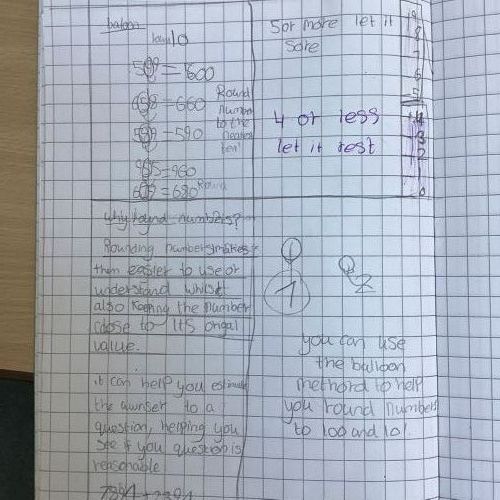 baloon
10
=600
=660
=590
=960
=680 Round
Round
number
to the
nearest
ten
5 or more let it
sore
4 or less
let it rest
9
8
7
6
5
4
3
2
1
0
Why round numbers?
Rounding numbers makes
them easier to use or
understand whilst
also keeping the number
close to its
value.
it can help you estimate
the awnser to a
question, helping you
see if you question is
reasonable
1
2
you can use
the balloon
methord to help
you round numbers
to 100 and 10!